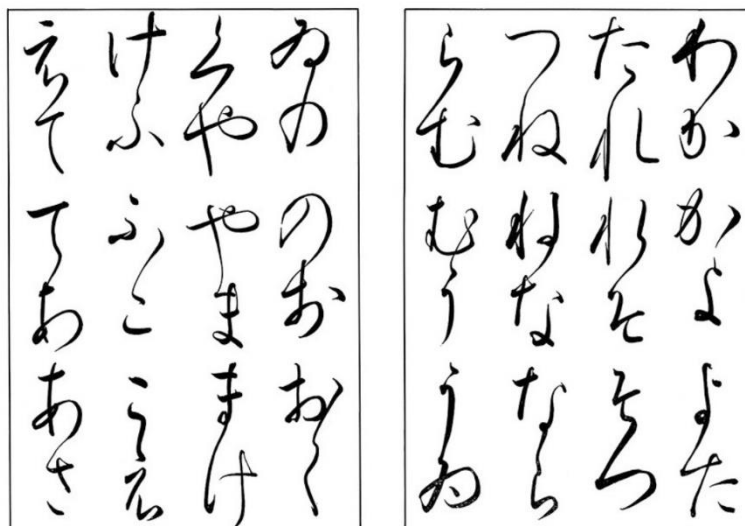 わか かよ よた
たれ れそ そつ
つね ねな なら
らむ むう うゐ
ゐの のお おく
くや やま まけ
けふ ふこ こえ
えて てあ あさ